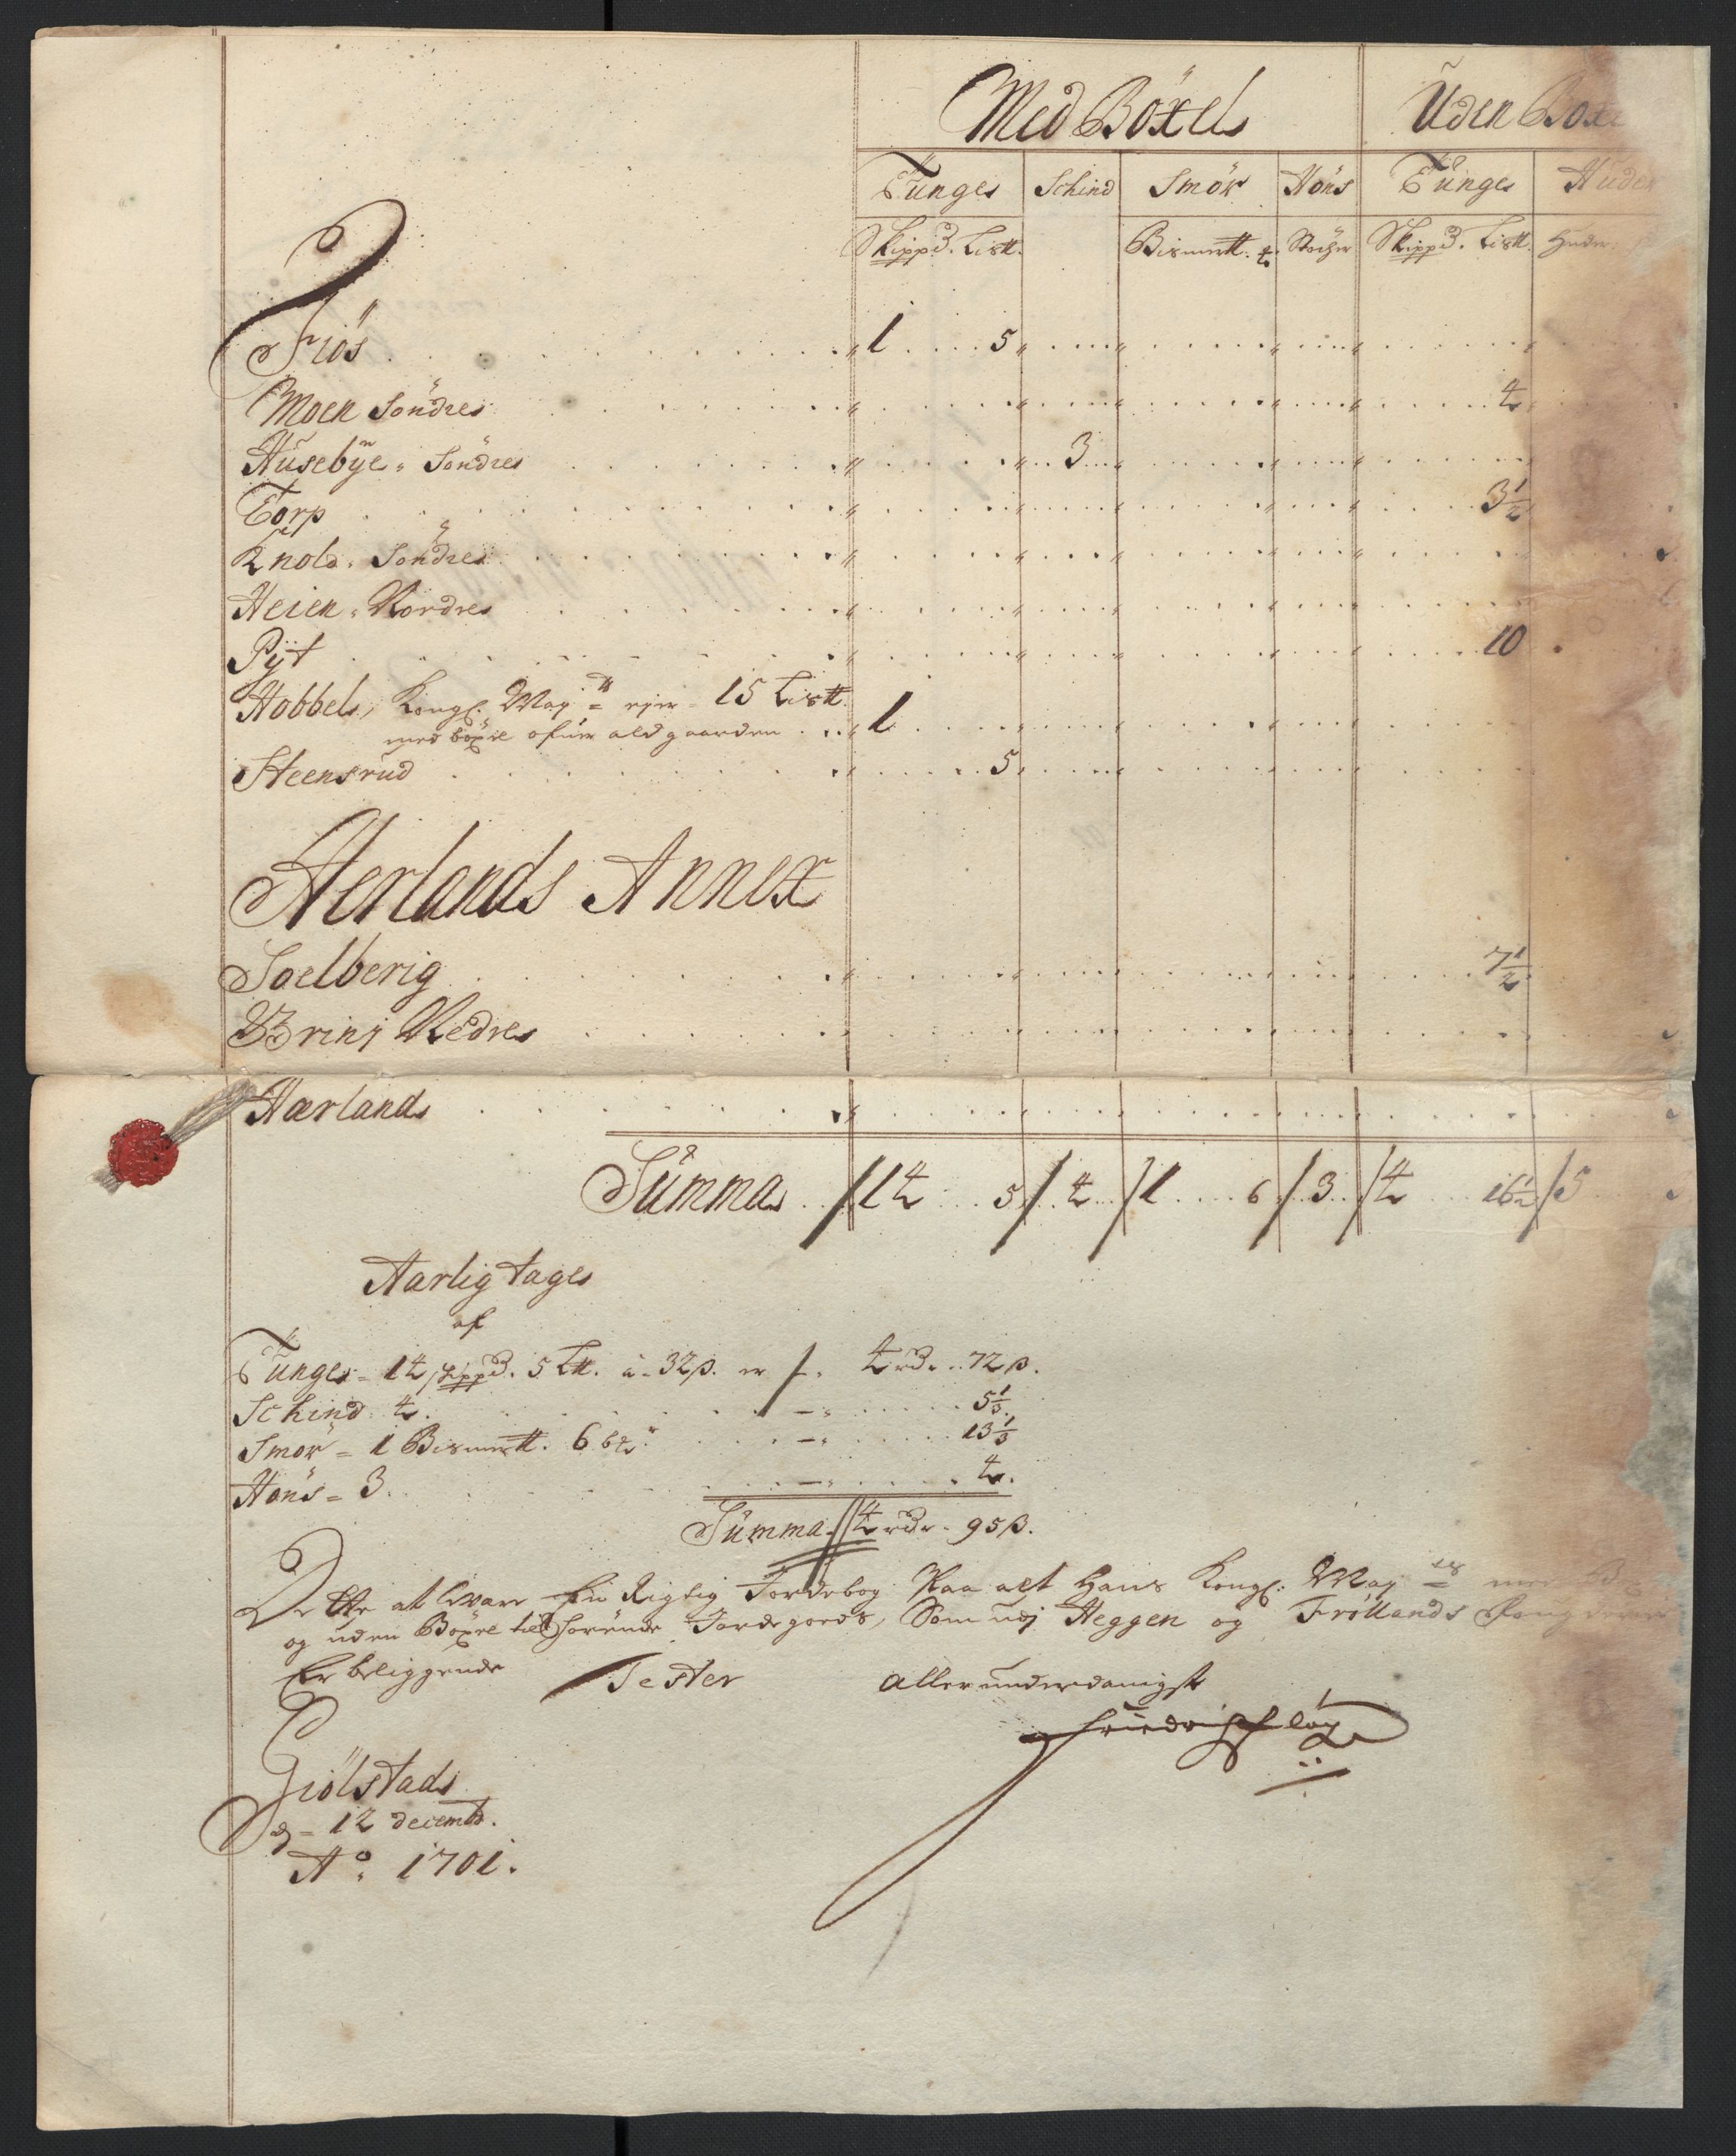 Med Böxels Uden Boxe
Tünges Schind Smör Höns Tünges Huder
Skippd. Lis℔. Bismer℔. ℔. Stocher Skippd. Lis℔. Huder
Fiös 1 5
Moen Söndres 4
Husebÿe Söndres 3
Torp 3 1/2
Knold. Söndres
Heien. Nordres
Pÿt 10
Hobbel, Kongl. Maÿ eyer 15 Lis℔
med böxel ofuer ald gaarden 1
Steensrud 5
Herlands Annex
Soelberig 7 1/2
Brini Nedres
Hærlands
Summa 14 5 4 1 6 3 4 16 1/2 5
Aarlig tages
af
Tünges 14 skippd. 5 L℔. a 32 β. er 4 rd. 72 β.
Schind 4. 5 1/3
Smör 1 Bismer℔. 6 13 1/3
Höns 3. 4.
Summa 4 rdr. 95 β.
Dette at were En Rigtig Jordebog Paa alt Hans Kongl. May med
og uden Böxel tilhörende Jordegoeds, Som udj Heggen og Fröllands
Er beliggende Tester allerunderdanigst
Giölstad
d 12 decemb.
Ao. 1701.